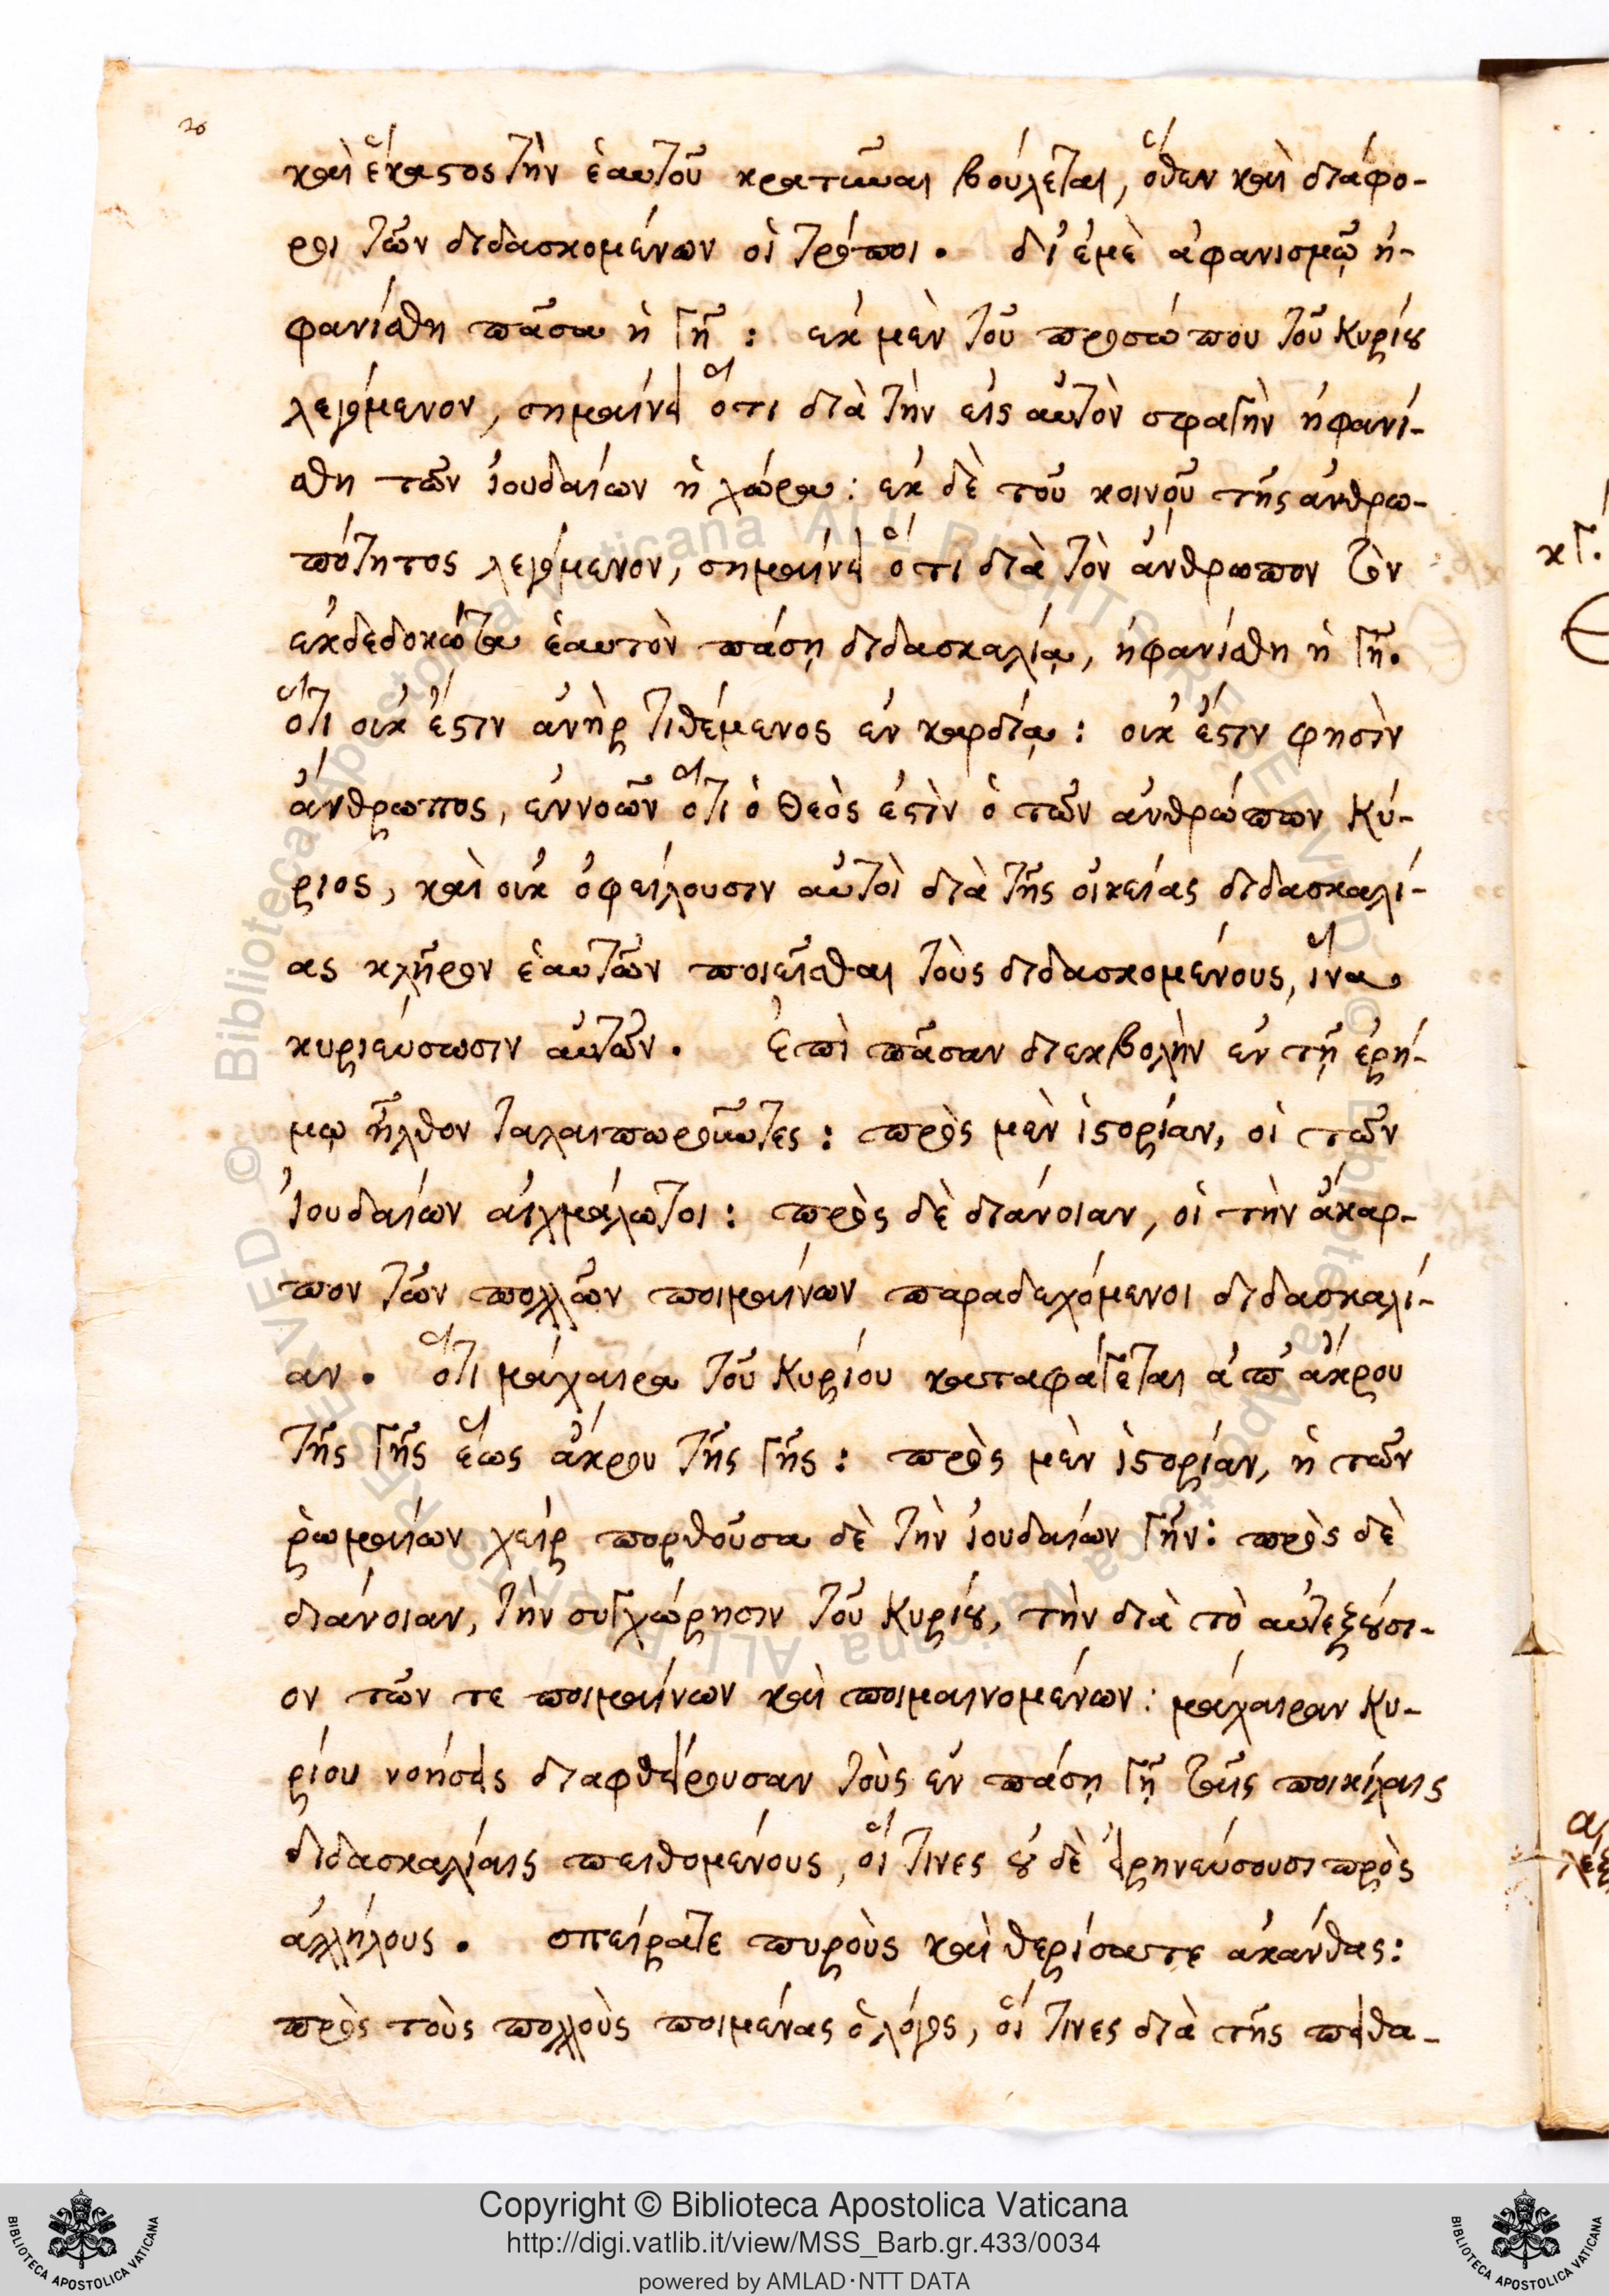 26
καὶ ἕκαστος τὴν ἑαυτοῦ κρατῦναι βούλεται, ὅθεν καὶ διάφο-
ροι τῶν διδασκομένων οἱ τρόποι. δι' ἐμὲ ἀφανισμῷ ἠ-
φανίσθη πᾶσα ἡ γῆ: ἐκ μὲν τοῦ προσώπου τοῦ Κυρίου
λεγόμενον, σημαίνει ὅτι διὰ τὴν εἰς αὐτὸν σφαγὴν ἠφανί-
σθη τῶν ἰουδαίων ἡ χώρα: ἐκ δὲ τοῦ κοινοῦ τῆς ἀνθρω-
πότητος λεγόμενον, σημαίνει ὅτι διὰ τὸν ἄνθρωπον τὸν
ἐκδεδοκότα ἑαυτὸν πάσῃ διδασκαλίᾳ, ἠφανίσθη ἡ γῆ.
ὅτι οὐκ ἔστιν ἀνὴρ τιθέμενος ἐν καρδίᾳ: οὐκ ἔστιν φησὶν
ἄνθρωπος, ἐννοῶν ὅτι ὁ Θεὸς ἐστὶν ὁ τῶν ἀνθρώπων Κύ-
ριος, καὶ οὐκ ὀφείλουσιν αὐτοὶ διὰ τῆς οἰκείας διδασκαλί-
ας κλῆρον ἑαυτῶν ποιεῖσθαι τοὺς διδασκομένους, ἵνα
κυριεύσωσιν αὐτῶν. Ἐπὶ πᾶσαν διεκβολὴν ἐν τῇ ἐρή-
μῳ ἦλθον ταλαιπωροῦντες: πρὸς μὲν ἱστορίαν, οἱ τῶν
Ἰουδαίων αἰχμάλωτοι: πρὸς δὲ διάνοιαν, οἱ τὴν ἄκαρ-
πον τῶν πολλῶν ποιμαίνων παραδεχόμενοι διδασκαλί-
αν. ὅτι μάχαιρα τοῦ Κυρίου καταφάγεται ἀπ' ἄκρου
τῆς γῆς ἕως ἄκρου τῆς γῆς: πρὸς μὲν ἱστορίαν, ἡ τῶν
ῥωμαίων χεὶρ πορθοῦσα δὲ τὴν ἰουδαίων γῆν: πρὸς δὲ
διάνοιαν, τὴν συγχώρησιν τοῦ Κυρίου, τὴν διὰ τὸ αὐτεξούσι-
ον τῶν τε ποιμαίνων καὶ ποιμαινομένων: μάχαιραν Κυ-
ρίου νοήσεις διαφθείρουσαν τοὺς ἐν πάσῃ γῇ ταῖς ποικίλαις
διδασκαλίαις πειθομένους, οἵ τινες οὐ δὲ εἰρηνεύσουσι πρὸς
ἀλλήλους. σπείρατε πυροὺς καὶ θερίσατε ἀκάνθας:
πρὸς τοὺς πολλοὺς ποιμένας ὁ λόγος, οἵ τινες διὰ τῆς πειθα-
κγ.
Copyright © Biblioteca Apostolica Vaticana
http://digi.vatlib.it/view/MSS_Barb.gr.433/0034
powered by AMLAD·NTT DATA
BIBLIOTECA APOSTOLICA VATICANA
BIBLIOTECA APOSTOLICA VATICANA